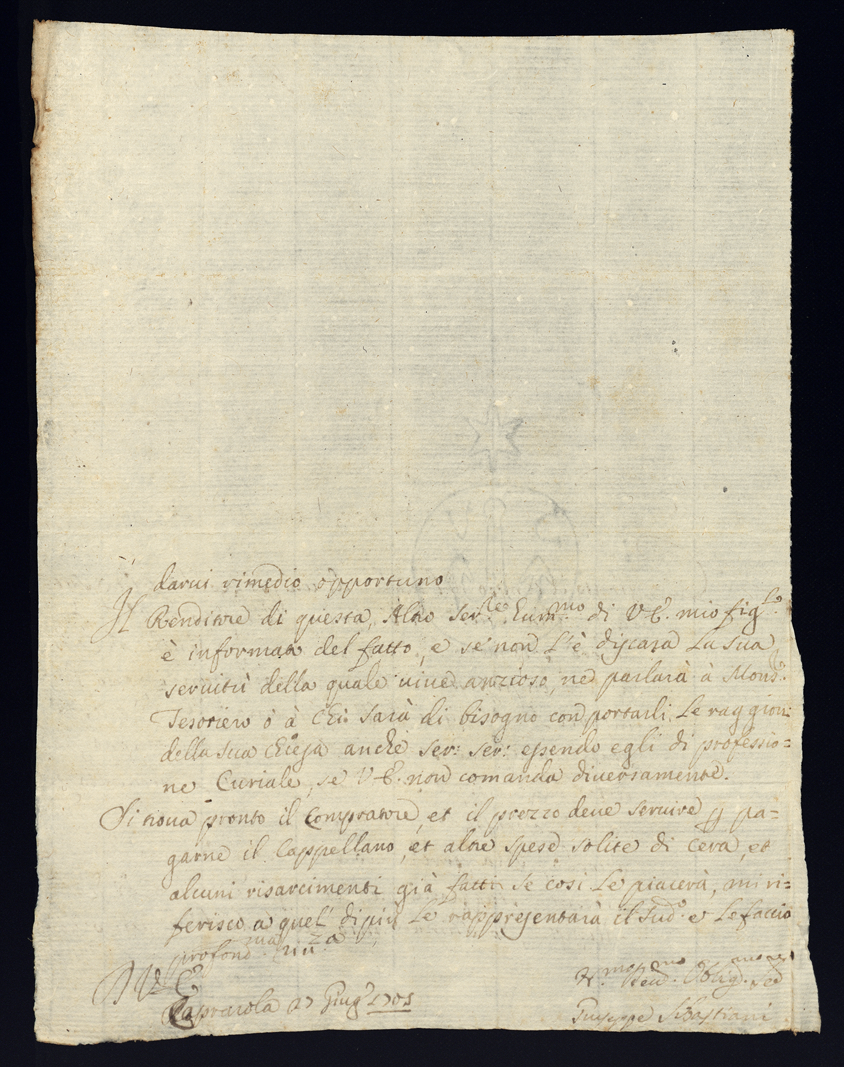 darvi rimedio opportuno
Il Renditore di questa, Altro Ser.re hum.mo di V.E. mio fig.lo
è informato del fatto, e se non L'è discara La sua
servitù della quale vive anzioso, ne parlarà à Mons.
Tesoriero ò à Chi sarà di bisogno con portarli Le raggion:
della sua Chiesa anche essendo egli di professio=
ne Curiale, se V.E. non comanda diversamente.
Si trova pronto il Compratore, et il prezzo deve servire pa=
garne il Cappellano, et altre spese solite di Cera, et
alcuni risarcimenti già fatti se così Le piacerà, mi ri=
ferisco a quel' di più Le rappresentarà il sud.o e Le faccio
profond.ma riv.za
D V.E.
Caprarola 27 Giug.o 1701
H.mo Dev.mo Oblig.mo
Giuseppe Sebastiani